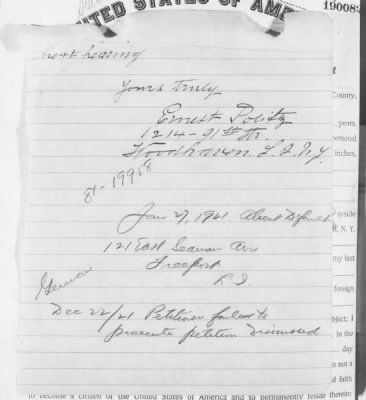 UNITED STATES OF AME
19008
next hearing
Yours truly
Ernest Politz
1214-91st Str.
Woodhaven L.I. N.Y.
81-19958
County,
years,
personal
inches,
Jan 27, 1921 Absent Default
reside
N. Y.
121 East Seaman Ave
Freeport
L.I.
my last
German
foreign
Dec 22/21 Petitioner failed to
prosecute petition Dismissed
bject; I
is the
day
not a
faith
to become a citizen of the United States of America and to permanently reside therein: